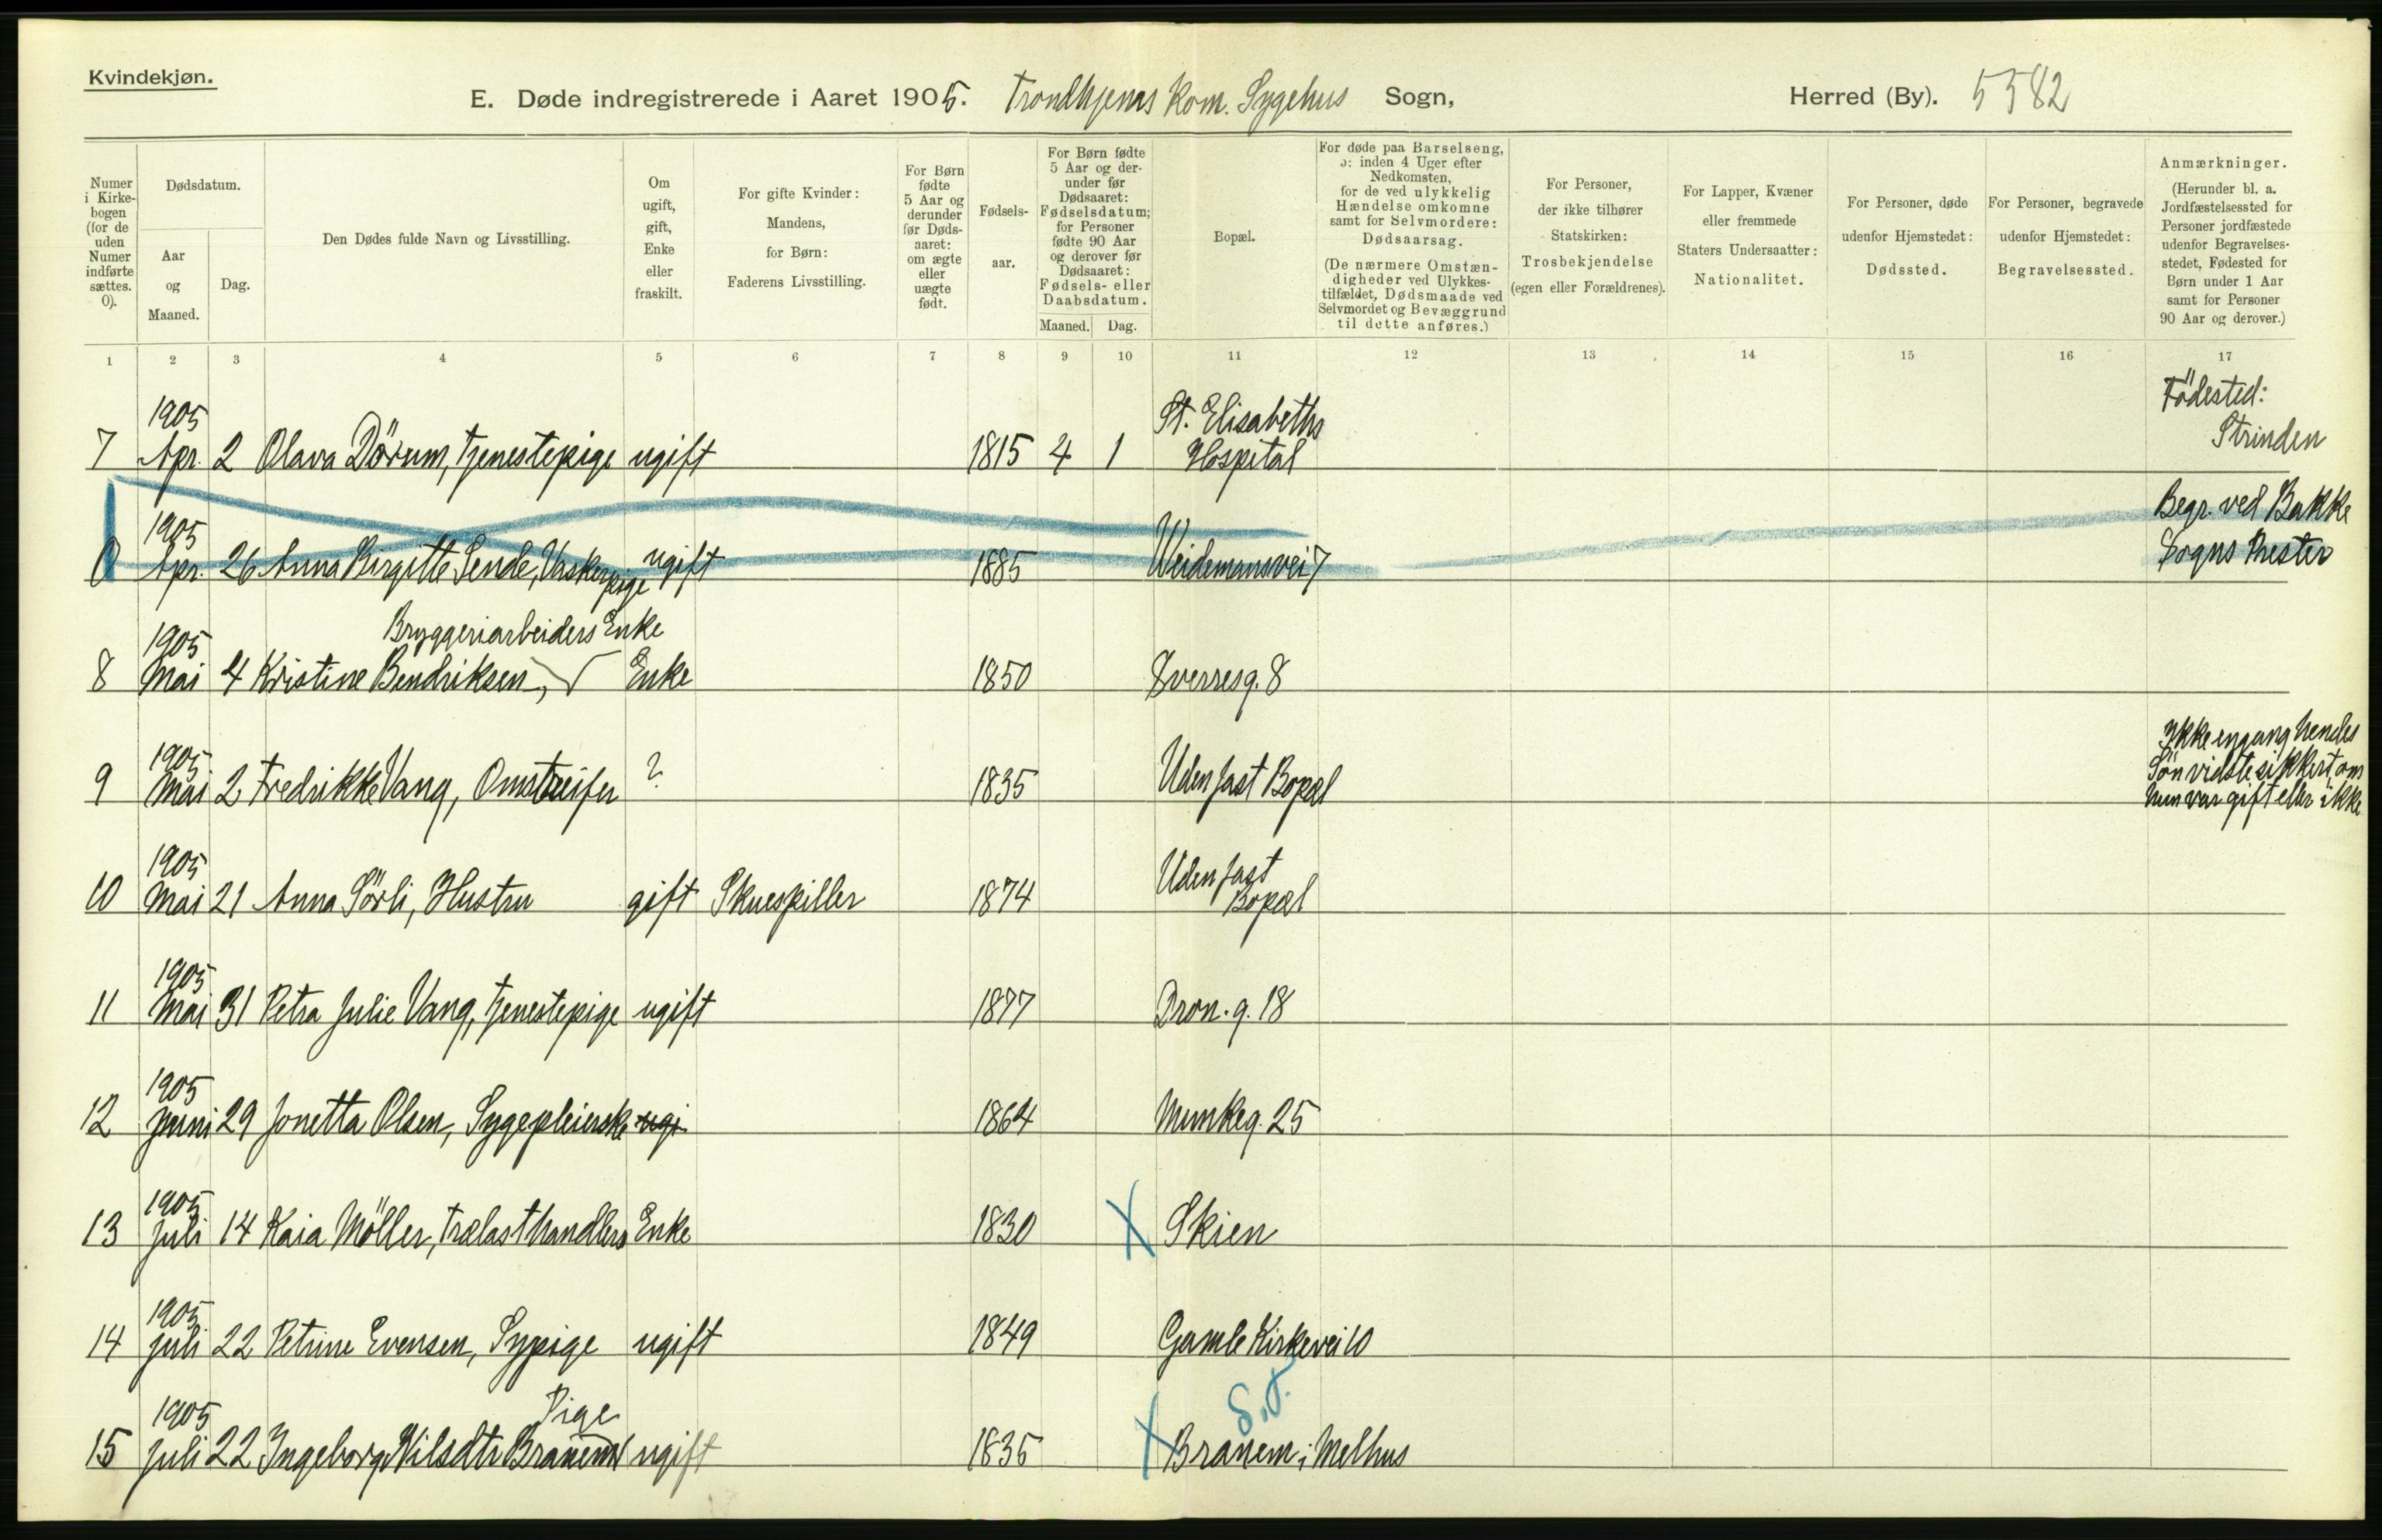 Kvindekjøn.
E. Døde indregistrerede i Aaret 1905. Trondhjems Kom. Sygehus Sogn, Herred (By). 5582
Numer i Kirke-bogen (for de uden Numer indførte sættes. 0).
Dødsdatum.
Aar og Maaned.
Dag.
Den Dødes fulde Navn og Livsstilling.
Om ugift, gift, Enke eller fraskilt.
For gifte Kvinder: Mandens, for Børn: Faderens Livsstilling.
For Børn fødte 5 Aar og derunder før Døds-aaret: om ægte eller uægte født.
Fødsels-aar.
For Børn fødte 5 Aar og der-under før Dødsaaret: Fødselsdatum; for Personer fødte 90 Aar og derover før Dødsaaret: Fødsels- eller Daabsdatum.
Maaned. Dag.
Bopæl.
For døde paa Barselseng, ɔ: inden 4 Uger efter Nedkomsten, for de ved ulykkelig Hændelse omkomne samt for Selvmordere: Dødsaarsag. (De nærmere Omstæn-digheder ved Ulykkes-tilfældet, Dødsmaade ved Selvmordet og Bevæggrund til dette anføres.)
For Personer, der ikke tilhører Statskirken: Trosbekjendelse (egen eller Forældrenes).
For Lapper, Kvæner eller fremmede Staters Undersaatter: Nationalitet.
For Personer, døde udenfor Hjemstedet: Dødssted.
For Personer, begravede udenfor Hjemstedet: Begravelsessted.
Anmærkninger. (Herunder bl. a. Jordfæstelsessted for Personer jordfæstede udenfor Begravelses-stedet, Fødested for Børn under 1 Aar samt for Personer 90 Aar og derover.)
1 2 3 4 5 6 7 8 9 10 11 12 13 14 15 16 17
1905 St. Elisabeths Födested:
7 Apr. 2 Olava Dörum, Tjenestepige ugift 1815 4 1 Hospital Strinden
1905 Begr. ved Bakke
0 Apr. 26 Anna Birgitte Sende, Vaskerpige ugift 1885 Weidemansvei 7 Sogns Prester
1905 Bryggeriarbeiders Enke
8 Mai 4 Kristine Bendriksen, Enke 1850 Sverresg. 8
1905 Ikke engang hendes
Sön vidste sikkert om
9 Mai 2 Fredrikke Vang, Omstreifer ? 1835 Uden fast Bopæl hun var gift eller ikke
1905 Uden fast
10 Mai 21 Anna Sörli, Hustru gift Skuespiller 1874 Bopæl
1905
11 Mai 31 Petra Julie Vang, Tjenestepige ugift 1877 Dron. g. 18
1905
12 Juni 29 Jonetta Olsen, Sygepleierske ugi 1864 Munkeg. 25
1905
13 Juli 14 Kaia Möller, Trælasthandlers Enke 1830 X Skien
1905
14 Juli 22 Petrine Evensen, Sypige ugift 1849 Gamle Kirkevei 10
1905 Pige S.T.
15 Juli 22 Ingeborg Nilsdtr Branem ugift 1835 X Branem i Melhus